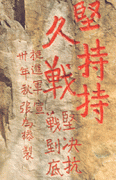 堅持持
久戰
堅決抗
戰到底
挺進軍
卅年秋張公製